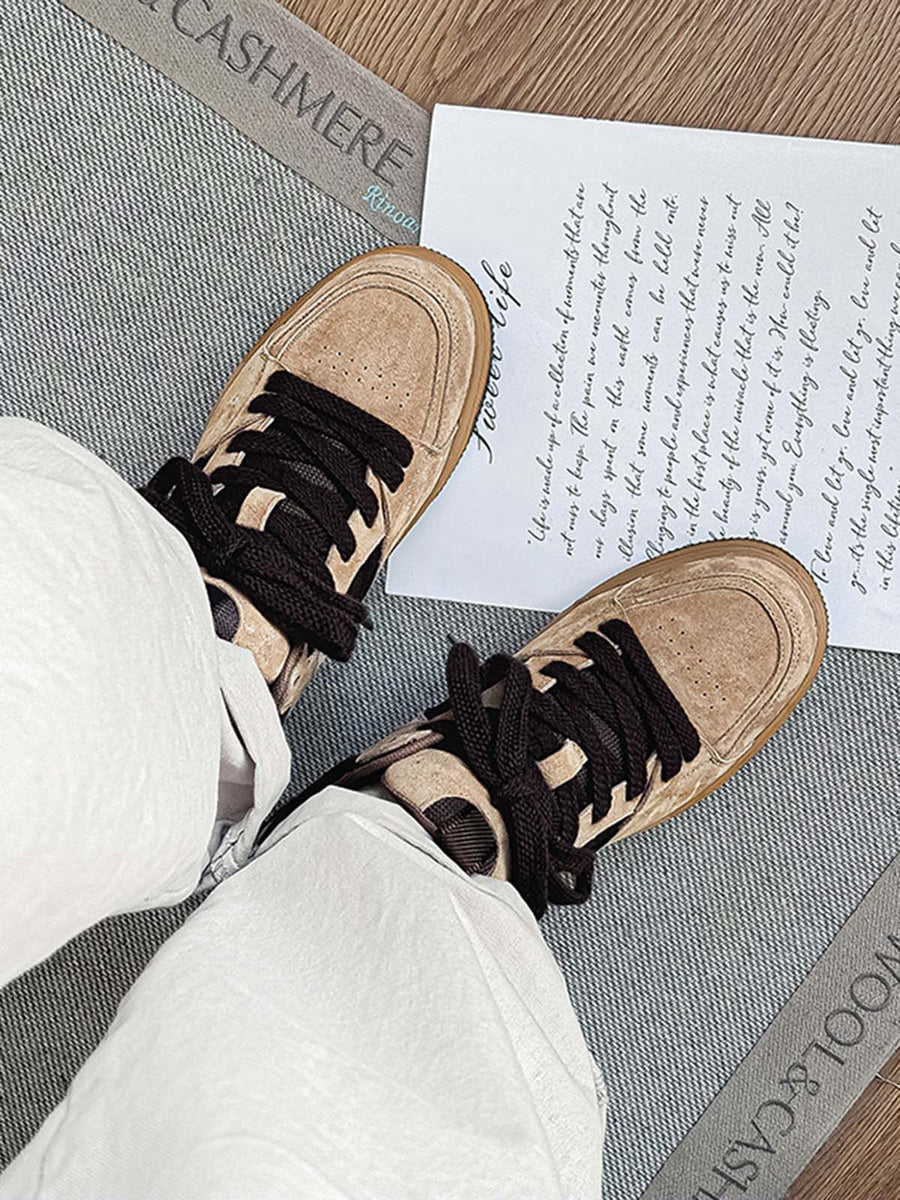 & CASHMERE
Rinoa
Sweet life
"Life is made up of a collection of moments that are
not ours to keep. The pain we encounter throughout
our days spent on this earth comes from the
illusion that some moments can be held onto.
Clinging to people and experiences that were never
in the first place is what causes us to miss out
he beauty of the miracle that is the now. All
is yours, yet none of it is. How could it be?
around you. Everything is fleeting.
To love and let go, love and let go, love and let
go...it's the single most important thing we can
in this lifetime.
WOOL & CASH